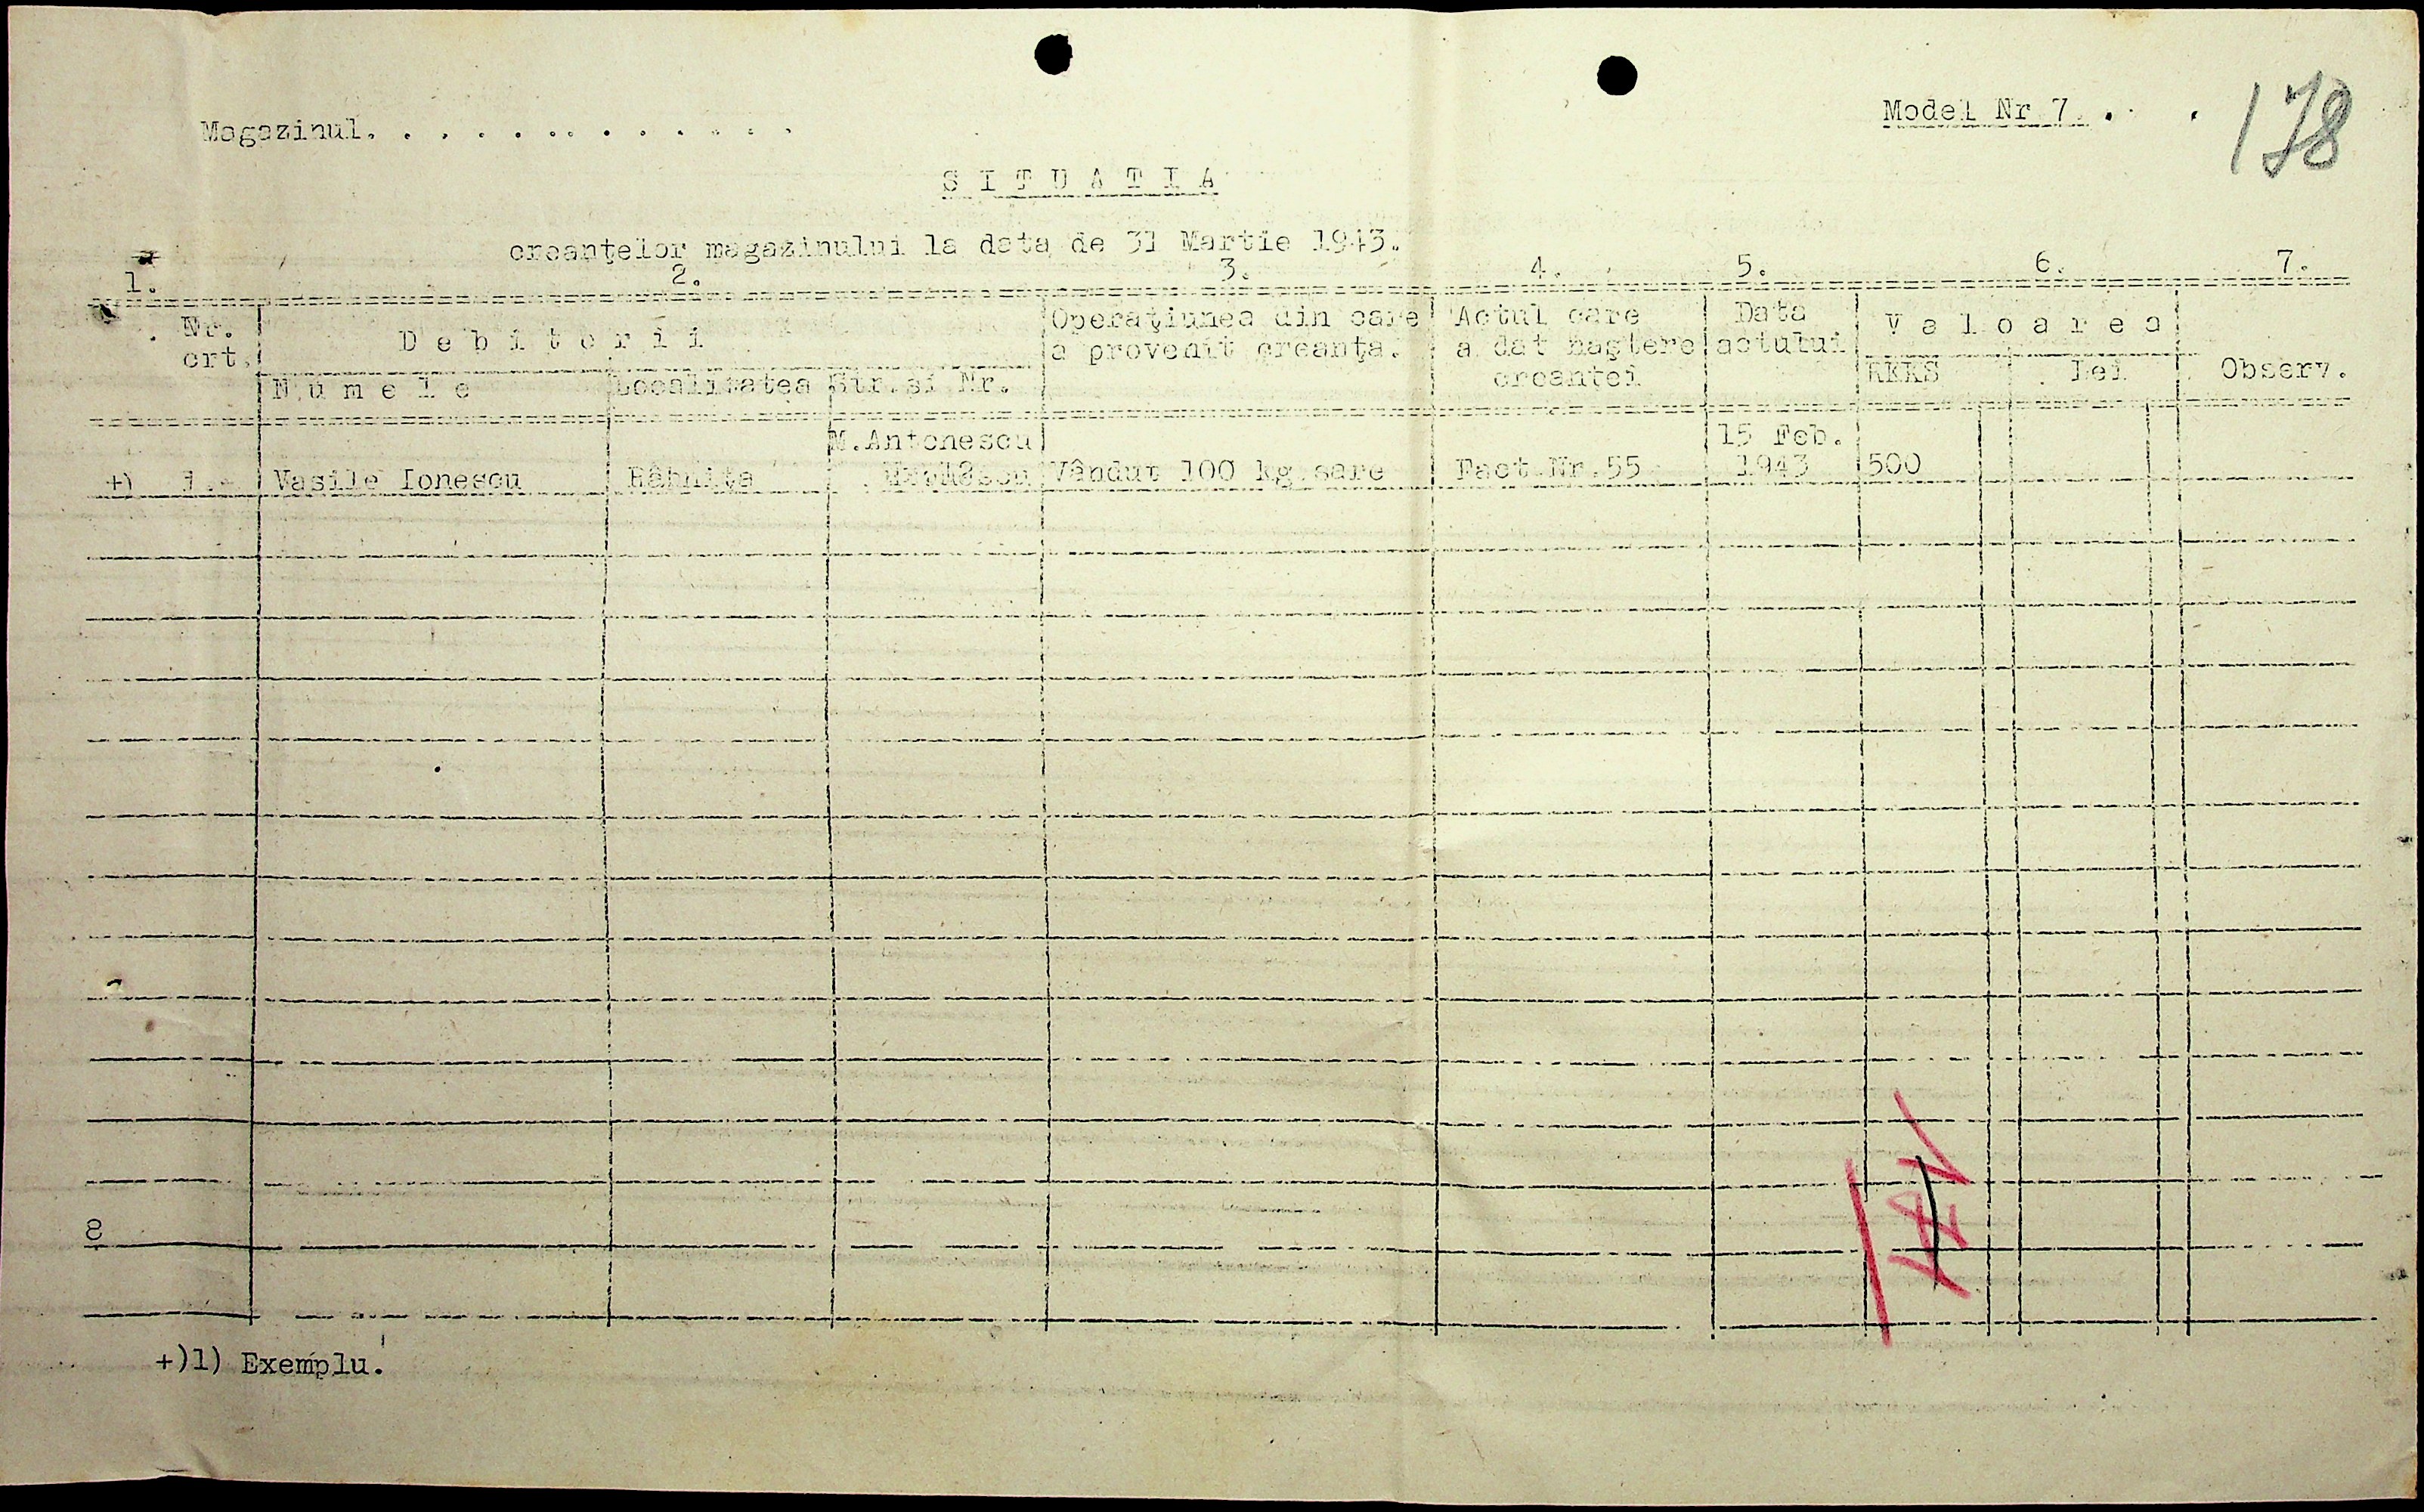 Model Nr 7. . .
178
Magazinul. . . . . . . . . . . . . .
S I T U A T I A
creanţelor magazinului la data de 31 Martie 1943.
1. 2. 3. 4. 5. 6. 7.
Nr. D e b i t o r i i Operaţiunea din care Actul care Data V a l o a r e a
crt. a provenit creanţa. a dat naştere actului
N u m e l e Localitatea Str.si Nr. creantei RKKS Lei Observ.
M.Antonescu 15 Feb.
+) 1.- Vasile Ionescu Râbniţa Vândut 100 kg.sare Fact.Nr.55 1943 500
8
+)1) Exemplu.